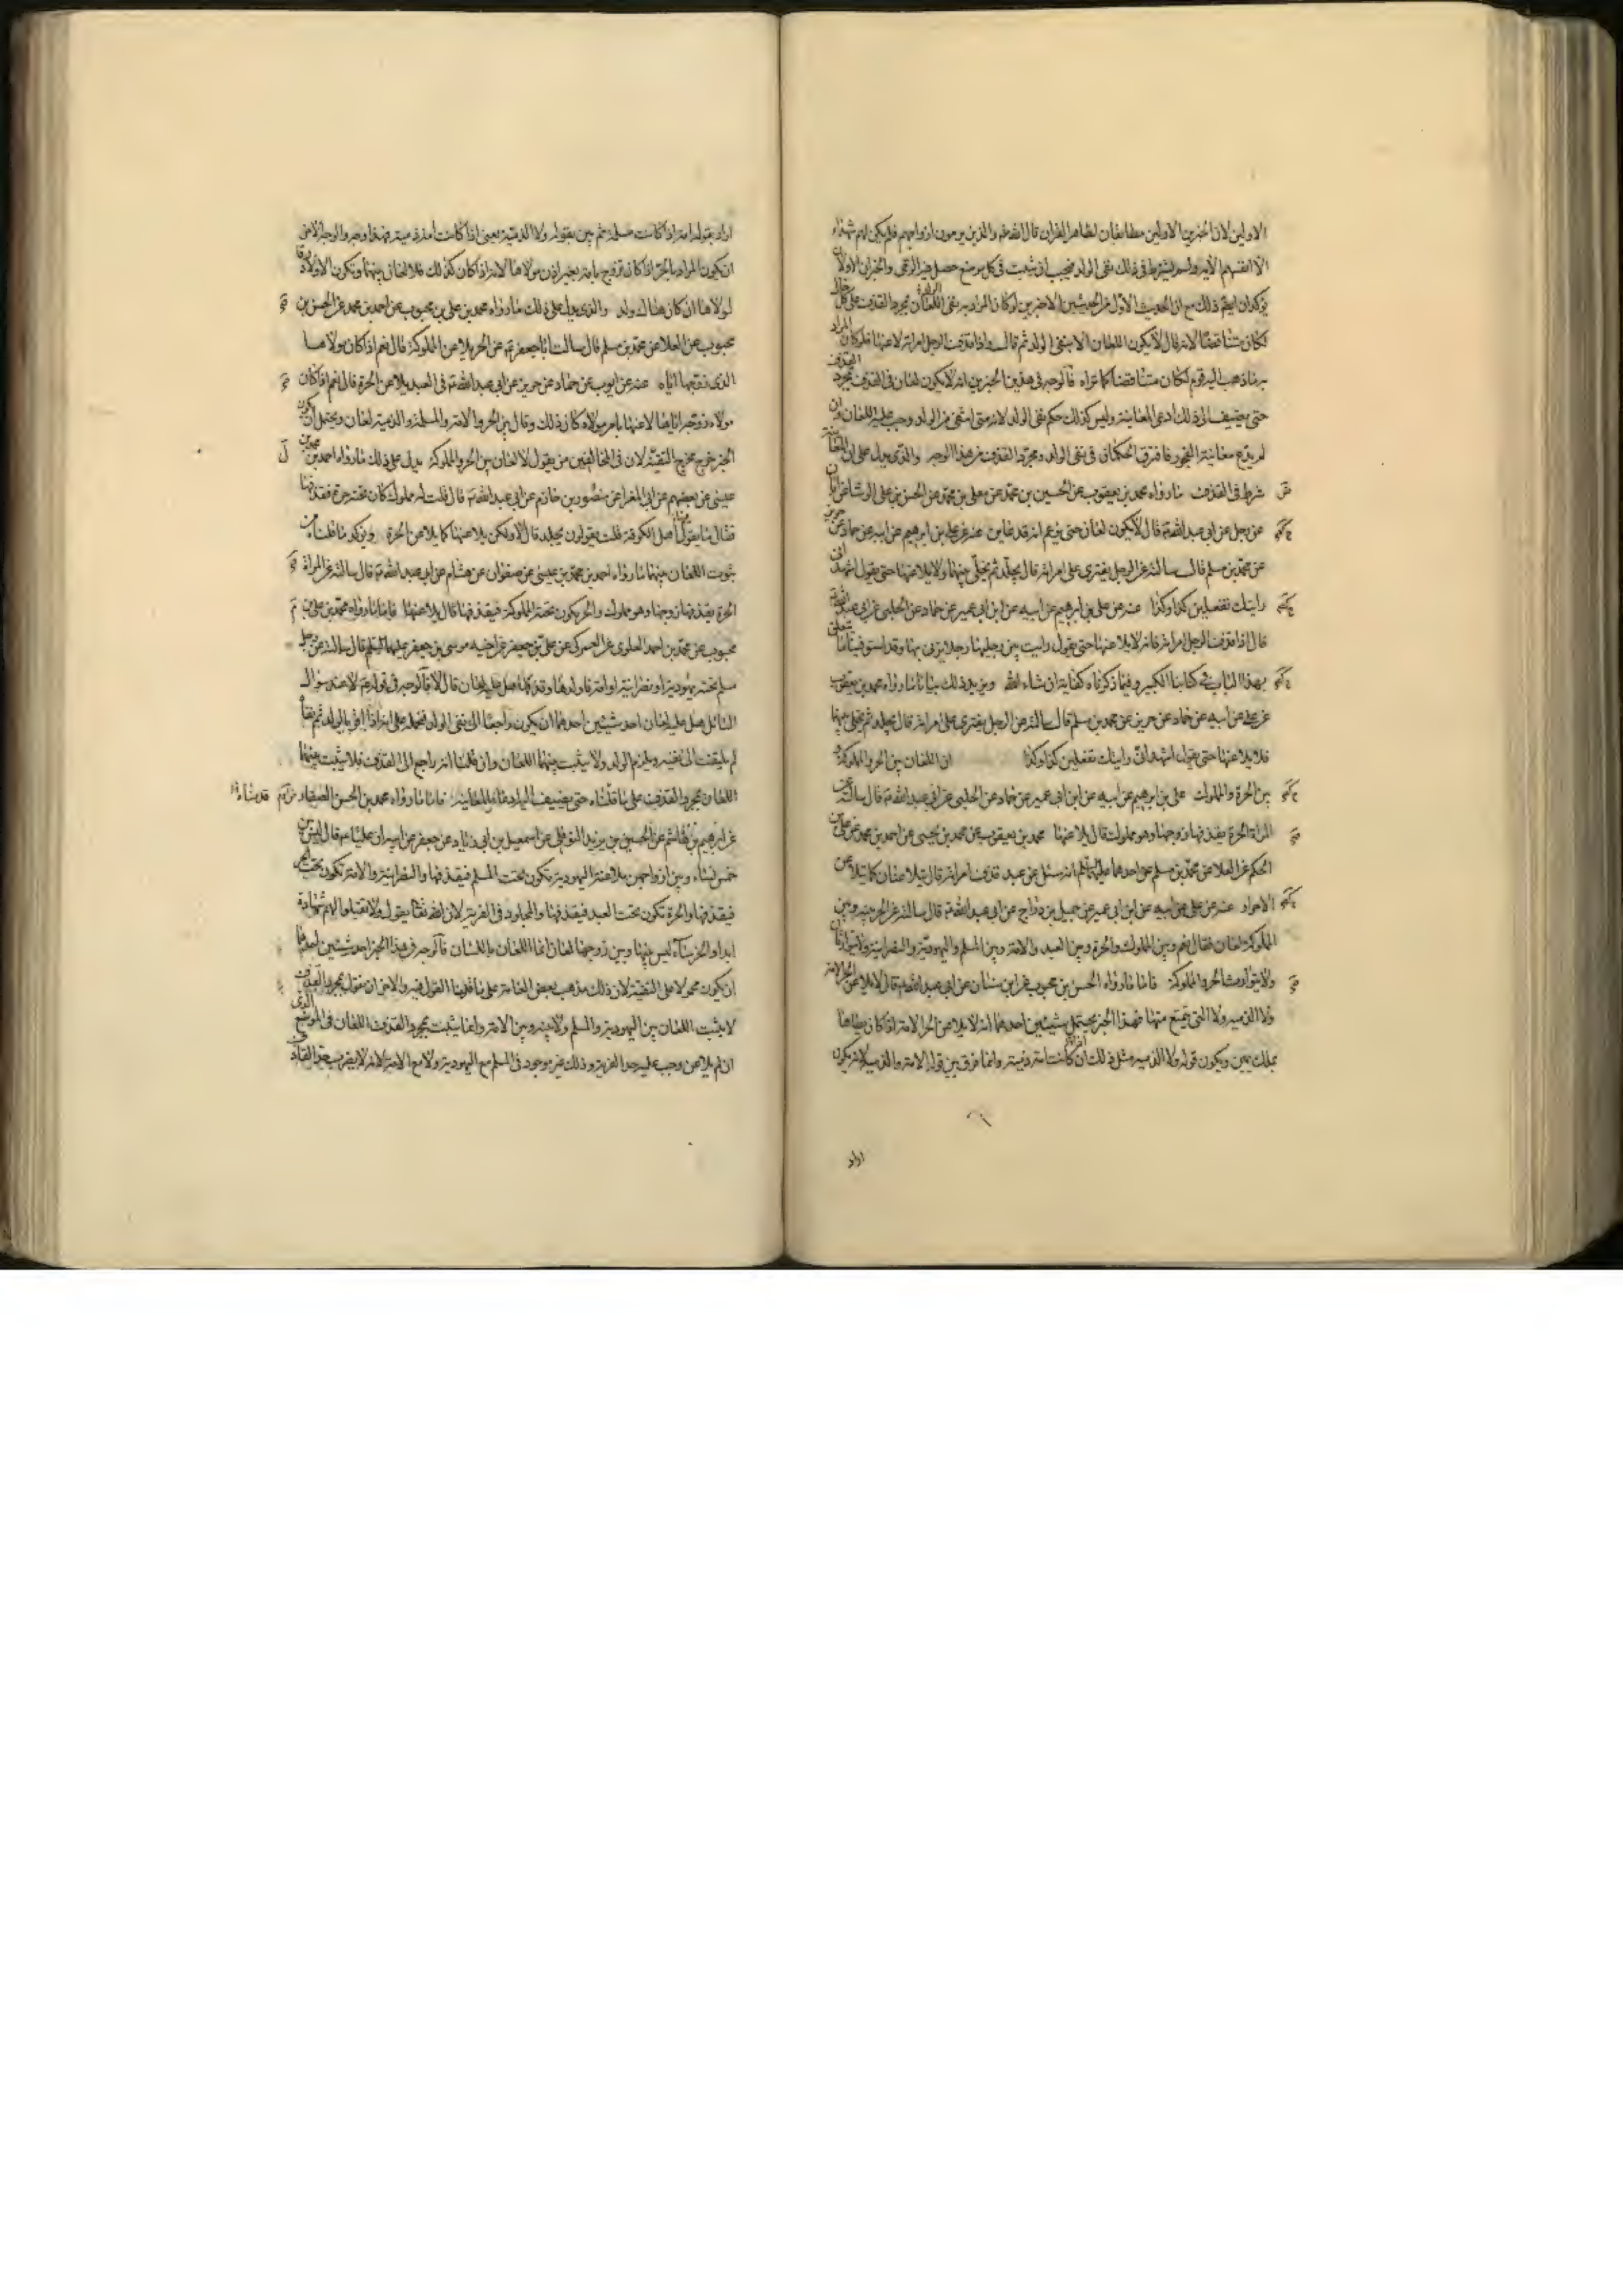 الاولين لان الخبرين الاولين مطابقان لظاهر القران قال الله تعالى والذين يرمون ازواجهم فلم يكن لهم شهداء
الا انفسهم الاية ولم يشترط في ذلك نفى الولد فيجب ان يثبت في كل موضع حصل فيه الرمي والخبران الاولان
يؤكدان ذلك مع ان الحديث الاول من الحديثين الاخيرين لو كان المراد به نفى اللعان بمجرد القذف على كل حال
لكان متناقضا لانه قال لا يكون اللعان الا بنفى الولد ثم قال واذا قذف الرجل امراته لاعنها فلو كان المراد
به ما ذهب اليه قوم لكان متناقضا كما تراه فالوجه في هذين الخبرين انه لا يكون لعان في القذف بمجرد القذف
حتى يضيف الى ذلك ادعى المعاينة وليس كذلك حكم نفى الولد لانه متى انتفى من الولد وجب عليه اللعان وان
لم يدع معاينة الفجور فافترق الحكمان في نفى الولد ومجرد القذف من هذا الوجه والذي يدل على ان المعاينة
شرط في القذف ما رواه محمد بن يعقوب عن الحسين بن محمد عن معلى بن محمد عن الحسن بن علي الوشا عن ابان
عن رجل عن ابي عبد الله ع قال لا يكون لعان حتى يزعم انه قد عاين عنه عن علي بن ابرهيم عن ابيه عن حماد عن حريز
عن محمد بن مسلم قال سالته عن الرجل يفتري على امراته قال يجلد ثم يخلى بينهما ولا يلاعنها حتى يقول اشهد اني
رايتك تفعلين كذا وكذا عنه عن علي بن ابرهيم عن ابيه عن ابن ابي عمير عن حماد عن الحلبي عن ابي عبد الله ع
قال اذا قذف الرجل امراته فانه لا يلاعنها حتى يقول رايت بين رجليها رجلا يزني بها وقد استوفينا ما يتعلق
بهذا الباب في كتابنا الكبير وفيما ذكرناه كفاية ان شاء الله ويزيد ذلك بيانا ما رواه محمد بن يعقوب
عن علي عن ابيه عن حماد عن حريز عن محمد بن مسلم قال سالته عن الرجل يفتري على امراته قال يجلد ثم يخلى بينهما
فلا يلاعنها حتى يقول اشهد اني رايتك تفعلين كذا وكذا ان اللعان بين الحر والمملوكة و
بين الحرة والمملوك علي بن ابرهيم عن ابيه عن ابن ابي عمير عن حماد عن الحلبي عن ابي عبد الله ع قال سالته عن
المراة الحرة يقذفها زوجها وهو مملوك قال يلاعنها محمد بن يعقوب عن محمد بن يحيى عن احمد بن محمد عن علي بن
الحكم عن العلا عن محمد بن مسلم عن احدهما عليهما السلم انه سئل عن عبد قذف امراته قال يتلاعنان كما يتلاعن
الاحرار عنه عن علي عن ابيه عن ابن ابي عمير عن جميل بن دراج عن ابي عبد الله ع قال سالته عن الحر بينه وبين
المملوكة لعان فقال نعم وبين المملوك والحرة وبين العبد والامة وبين المسلم واليهودية والنصرانية ولا يتوارثان
ولا يتوارث الحر والمملوكة فاما ما رواه الحسن بن محبوب عن ابن سنان عن ابي عبد الله ع قال لا يلاعن الحر الامة
ولا الذمية ولا التي يتمتع منها فهذا الخبر يحتمل شيئين احدهما انه لا يلاعن الحر الامة اذا كان يطاها
بملك يمين ويكون قوله ولا الذمية مثل ذلك ان كانت امة ذمية وانما فرق بين قوله الامة والذمية لانه يكون
اراد
اراد بقوله امة اذا كانت مسلمة ثم بين بقوله ولا الذمية يعني اذا كانت امة ذمية فهذا وجه والوجه الاخر
ان يكون المراد بالخبر اذا كان تزوج بامة بغير اذن مولاها لانه اذا كان كذلك فلا لعان بينهما وتكون الاولاد رقا
لمولاها ان كان هناك ولد والذي يدل على ذلك ما رواه محمد بن علي بن محبوب عن احمد بن محمد عن الحسن بن
محبوب عن العلا عن محمد بن مسلم قال سالت ابا جعفر ع عن الحر يلاعن المملوكة قال نعم اذا كان مولاها
الذي زوجها اياه عنه عن ايوب عن حماد عن حريز عن ابي عبد الله ع في العبد يلاعن الحرة قال نعم اذا كان
مولاه زوجه اياها لاعنها بامر مولاه كان ذلك وقال بين الحر والامة والمسلم والذمية لعان ويحتمل ان يكون
الخبر خرج مخرج التقية لان في المخالفين من يقول لا لعان بين الحر والمملوكة يدل على ذلك ما رواه احمد بن محمد بن
عيسى عن بعضهم عن ابي المغرا عن منصور بن حازم عن ابي عبد الله ع قال قلت له مملوك كان تحته حرة فقذفها
فقال ما يقول فيها اهل الكوفة قلت يقولون يجلد قال لا ولكن يلاعنها كما يلاعن الحرة ويؤكد ما قلناه من
ثبوت اللعان بينهما ما رواه احمد بن محمد بن عيسى عن صفوان عن هشام عن ابي عبد الله ع قال سالته عن المراة
الحرة يقذفها زوجها وهو مملوك والحر يكون تحته المملوكة فيقذفها قال يلاعنها فاما ما رواه محمد بن علي بن
محبوب عن محمد بن احمد العلوي عن العمركي عن علي بن جعفر عن اخيه موسى بن جعفر عليهما السلم قال سالته عن رجل
مسلم تحته يهودية او نصرانية او امة فاولدها وقذفها هل عليه لعان قال لا فالوجه في قوله ع لا عند سؤال
السائل هل عليه لعان احد شيئين احدهما ان يكون راجعا الى نفى الولد فنحمله على انه اذا اقر بالولد ثم نفاه
لم يلتفت الى نفيه ويلزم الولد ولا يثبت بينهما اللعان وان قلنا انه راجع الى القذف فلا يثبت بينهما
اللعان بمجرد القذف على ما قلناه حتى يضيف اليه ادعاء المعاينة فاما ما رواه محمد بن الحسن الصفار
عن ابرهيم بن هاشم عن الحسين بن يزيد النوفلي عن اسمعيل بن ابي زياد عن جعفر عن ابيه ان عليا ع قال ليس بين
خمس نساء وبين ازواجهن ملاعنة اليهودية تكون تحت المسلم فيقذفها والنصرانية والامة تكون تحت الحر
فيقذفها والحرة تكون تحت العبد فيقذفها والمجلود في الفرية لان الله تعالى يقول ولا تقبلوا لهم شهادة
ابدا والخرساء ليس بينها وبين زوجها لعان انما اللعان باللسان فالوجه في هذا الخبر احد شيئين احدهما
ان يكون محمولا على التقية لان ذلك مذهب بعض العامة على ما قدمنا القول فيه والاخر ان نقول بمجرد القذف
لا يثبت اللعان بين اليهودية والمسلم ولا بينه وبين الامة وانما يثبت بمجرد القذف اللعان في الموضع الذي
ان لم يلاعن وجب عليه حد الفرية وذلك غير موجود في المسلم مع اليهودية ولا مع الامة لانه لا يضرب حد القاذف